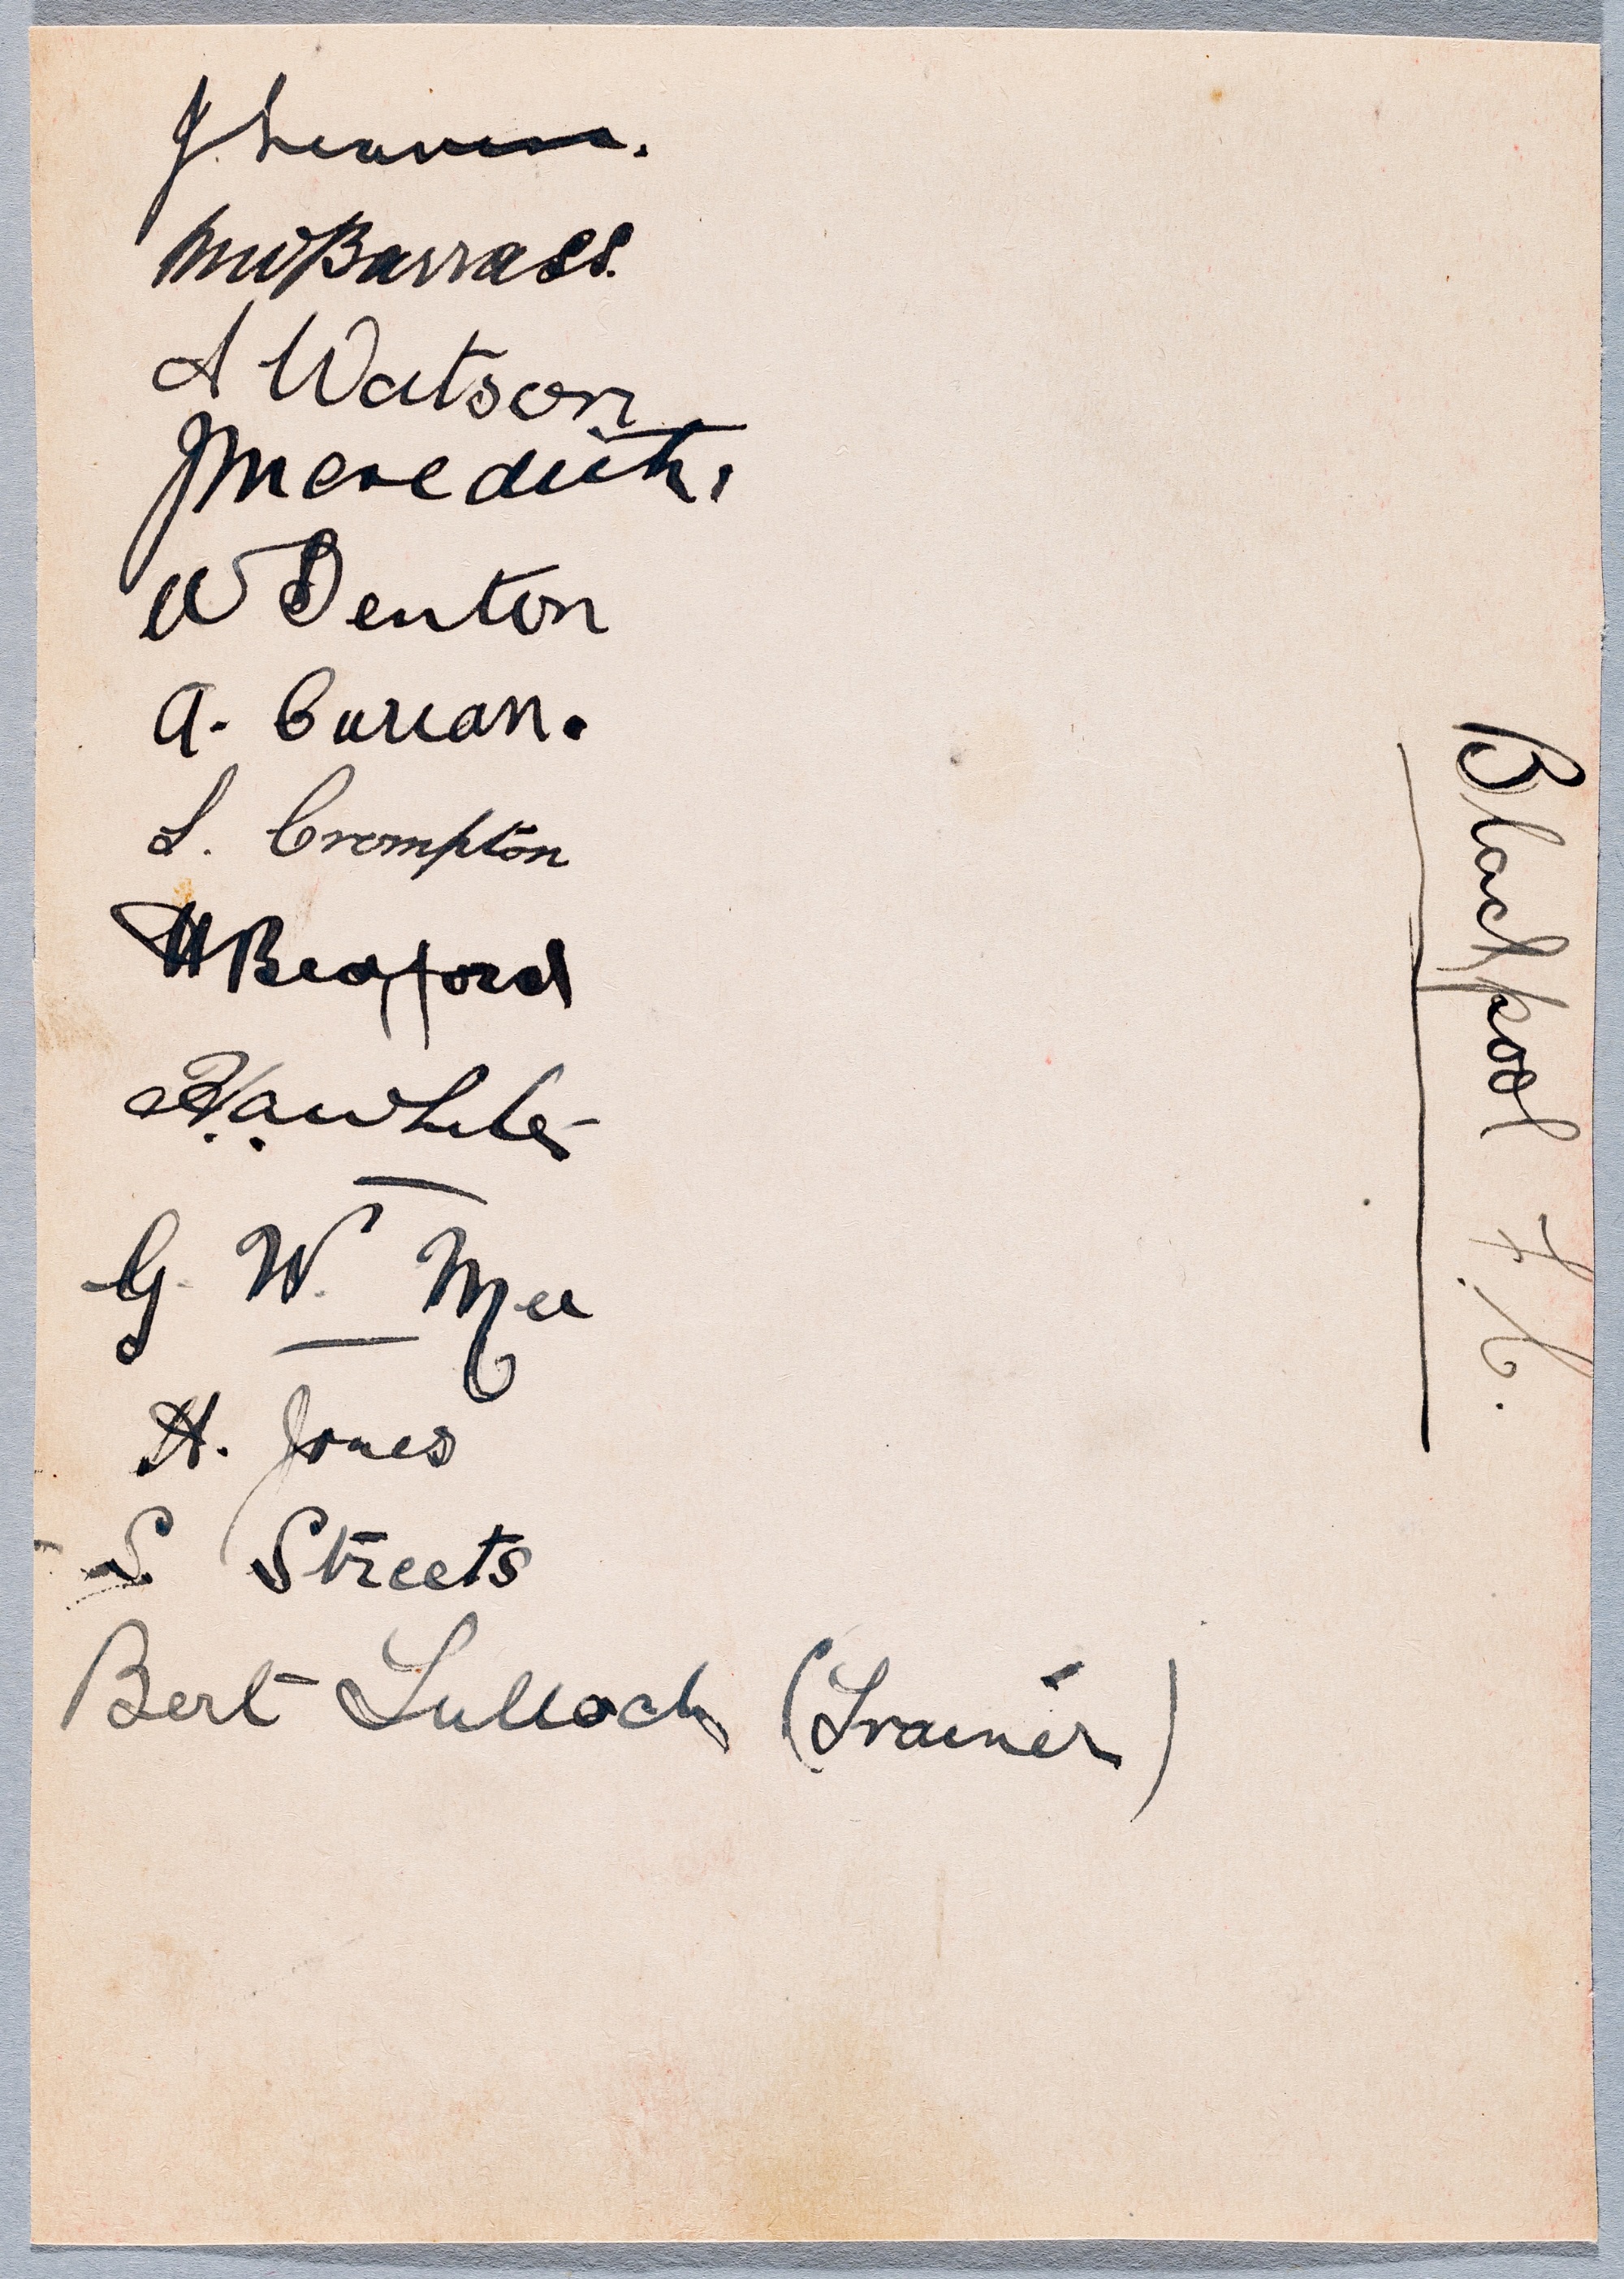 J. Leaver.
MW Barrass.
A Watson
J Meredith.
W Denton
A. Curran.
L. Crompton
H Bedford
H. A. White
G. W. Mee
H. Jones
S Streets
Bert Tulloch (Trainer)
Blackpool F.C.